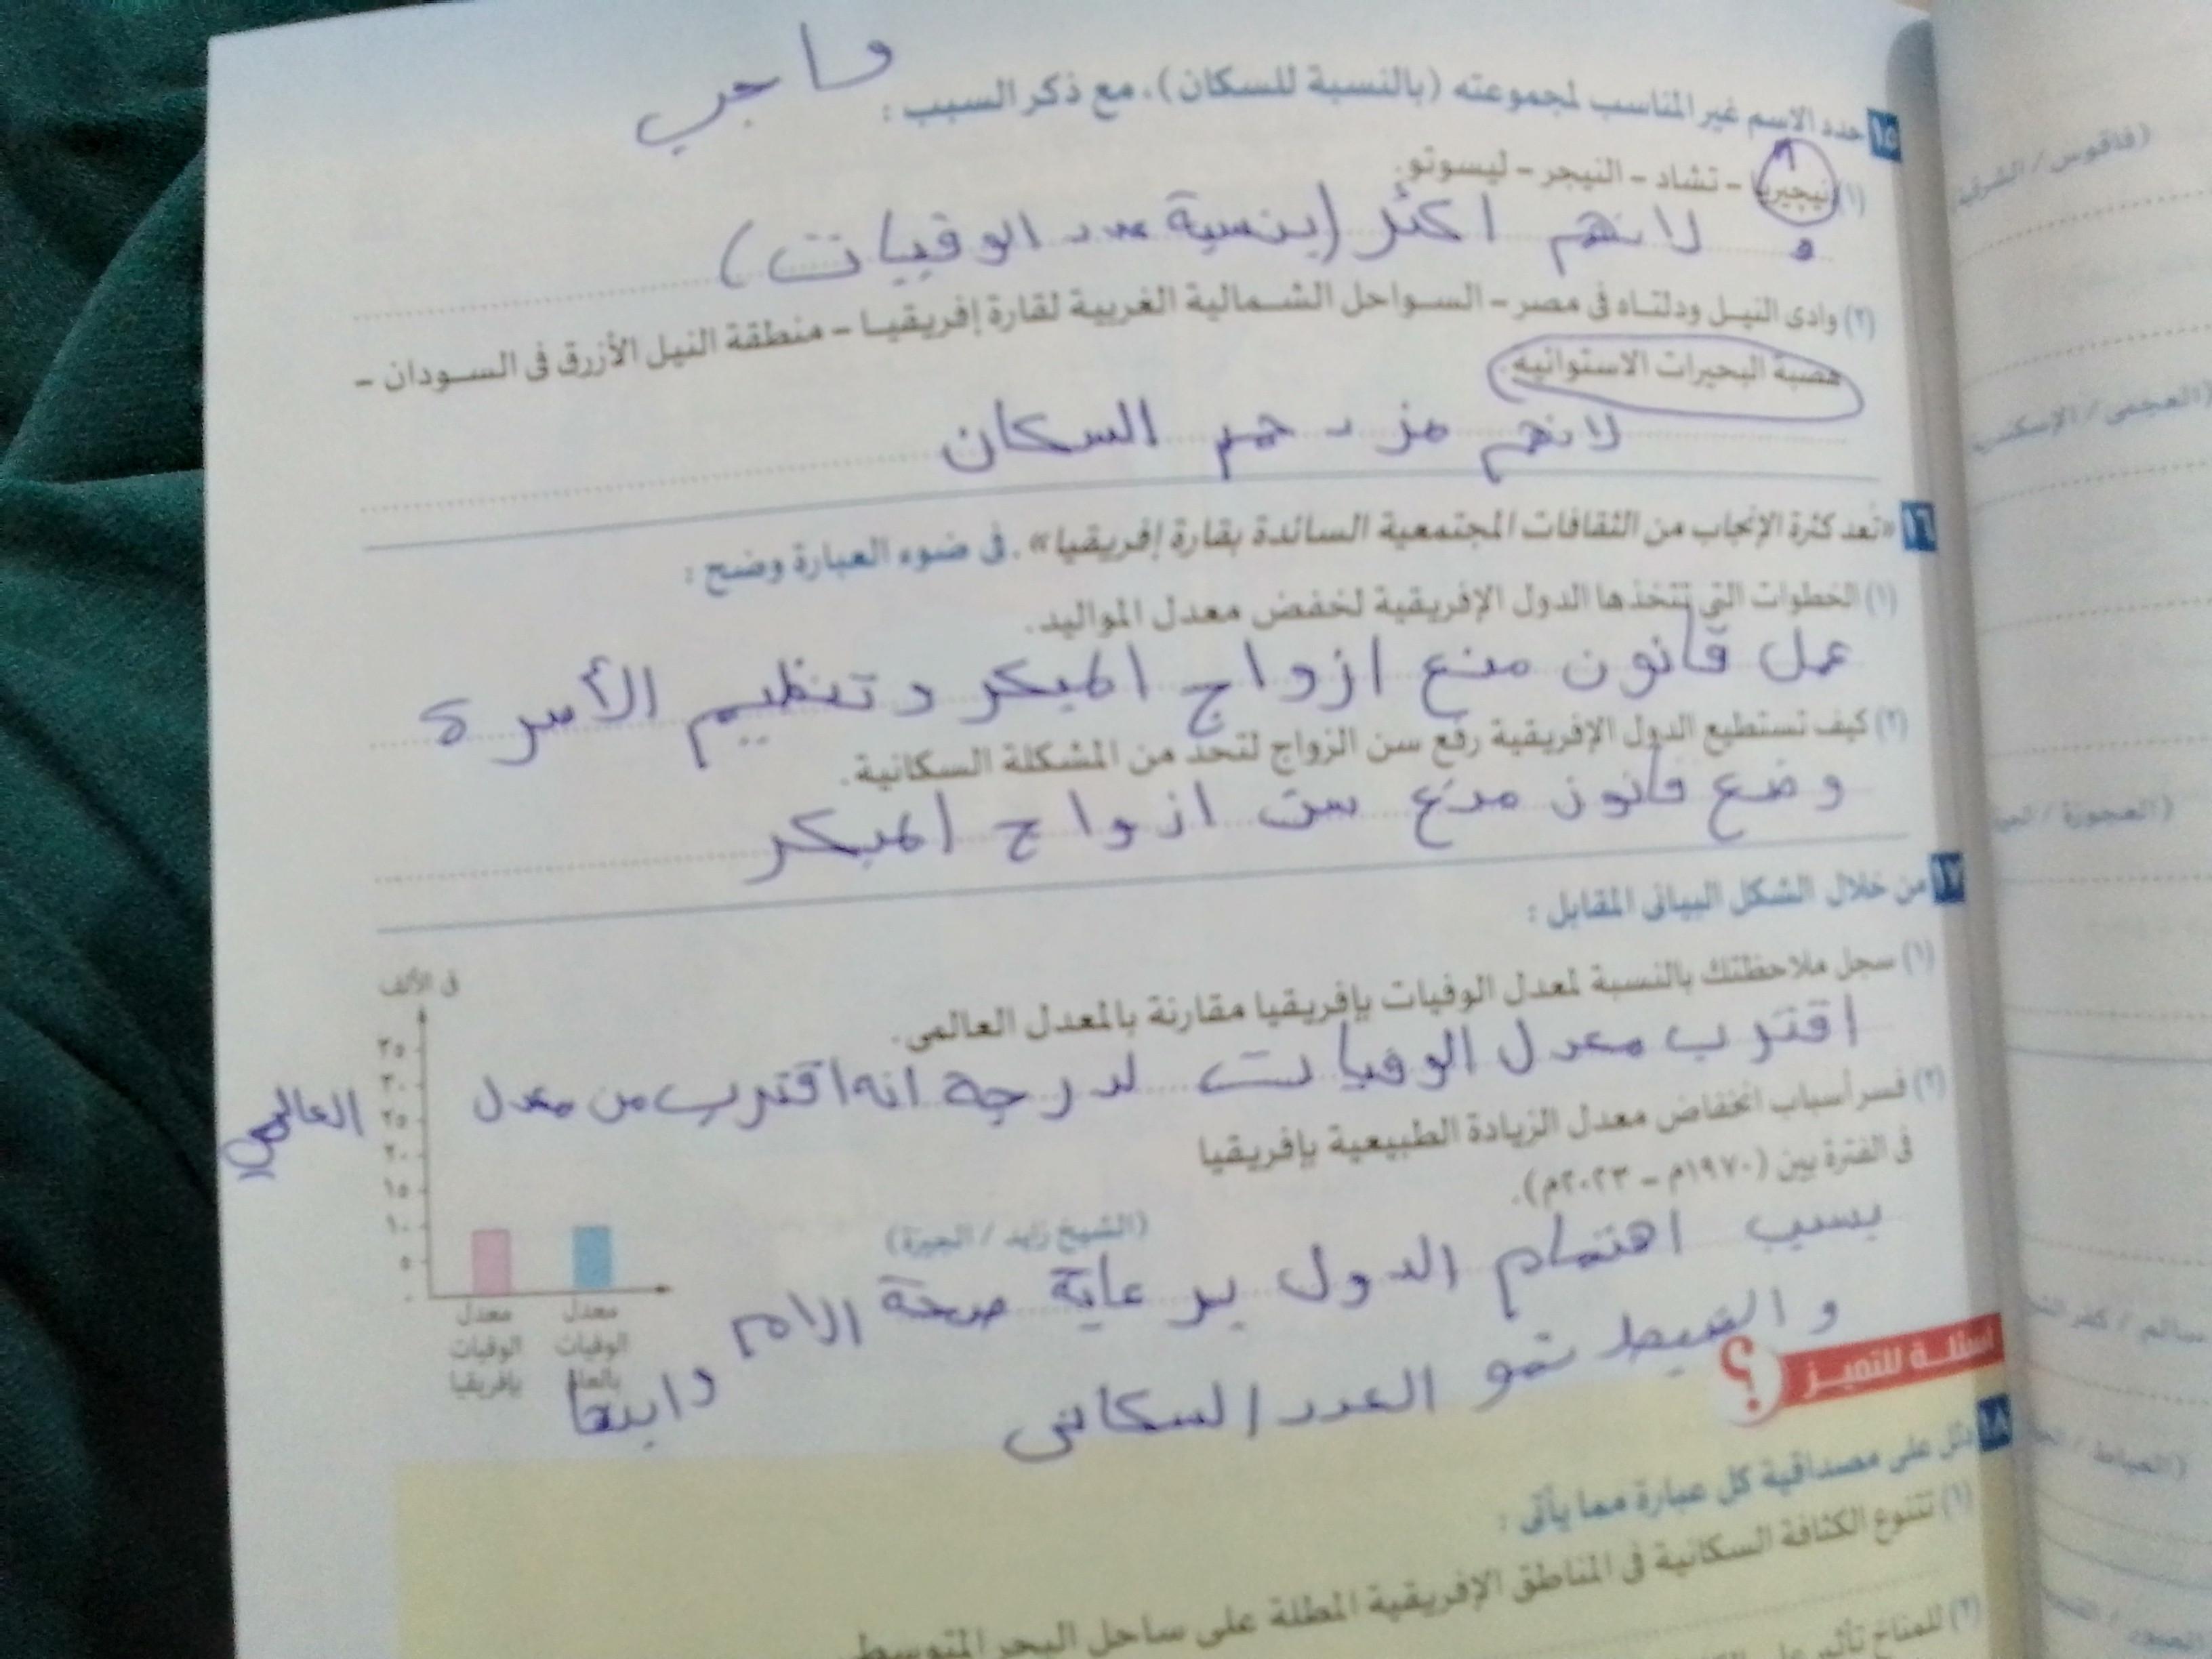 واجب
١٥ حدد الاسم غير المناسب لمجموعته (بالنسبة للسكان)، مع ذكر السبب :
(١) نيجيريا - تشاد - النيجر - ليسوتو.
لانهم اكثر (بنسبة عدد الوفيات)
(٢) وادى النيل ودلتاه فى مصر - السواحل الشمالية الغربية لقارة إفريقيا - منطقة النيل الأزرق فى السودان -
هضبة البحيرات الاستوائية.
لانهم مزدحم السكان
١٦ «تُعد كثرة الإنجاب من الثقافات المجتمعية السائدة بقارة إفريقيا». فى ضوء العبارة وضح :
(١) الخطوات التى تتخذها الدول الإفريقية لخفض معدل المواليد.
عمل قانون منع ازواج المبكر و تنظيم الأسرة
(٢) كيف تستطيع الدول الإفريقية رفع سن الزواج لتحد من المشكلة السكانية.
وضع قانون منع سن ازواج المبكر
١٧ من خلال الشكل البيانى المقابل :
(١) سجل ملاحظتك بالنسبة لمعدل الوفيات بإفريقيا مقارنة بالمعدل العالمى.
اقترب معدل الوفيات لدرجة انه اقترب من معدل العالمي
(٢) فسر أسباب انخفاض معدل الزيادة الطبيعية بإفريقيا
فى الفترة بين (١٩٧٠م - ٢٠٢٣م).
(الشيخ زايد / الجيزة)
بسبب اهتمام الدول برعاية صحة الام وابنها
و نمو العدد السكانى
فى الألف
٣٥
٣٠
٢٥
٢٠
١٥
١٠
٥
٠
معدل الوفيات بإفريقيا
معدل الوفيات بالعالم
أسئلة للتميز ؟
١٨ دلل على مصداقية كل عبارة مما يأتى :
(١) تتنوع الكثافة السكانية فى المناطق الإفريقية المطلة على ساحل البحر المتوسط
(٢) للمناخ تأثير على
(فاقوس /
(العجمى /
(العجوزة /